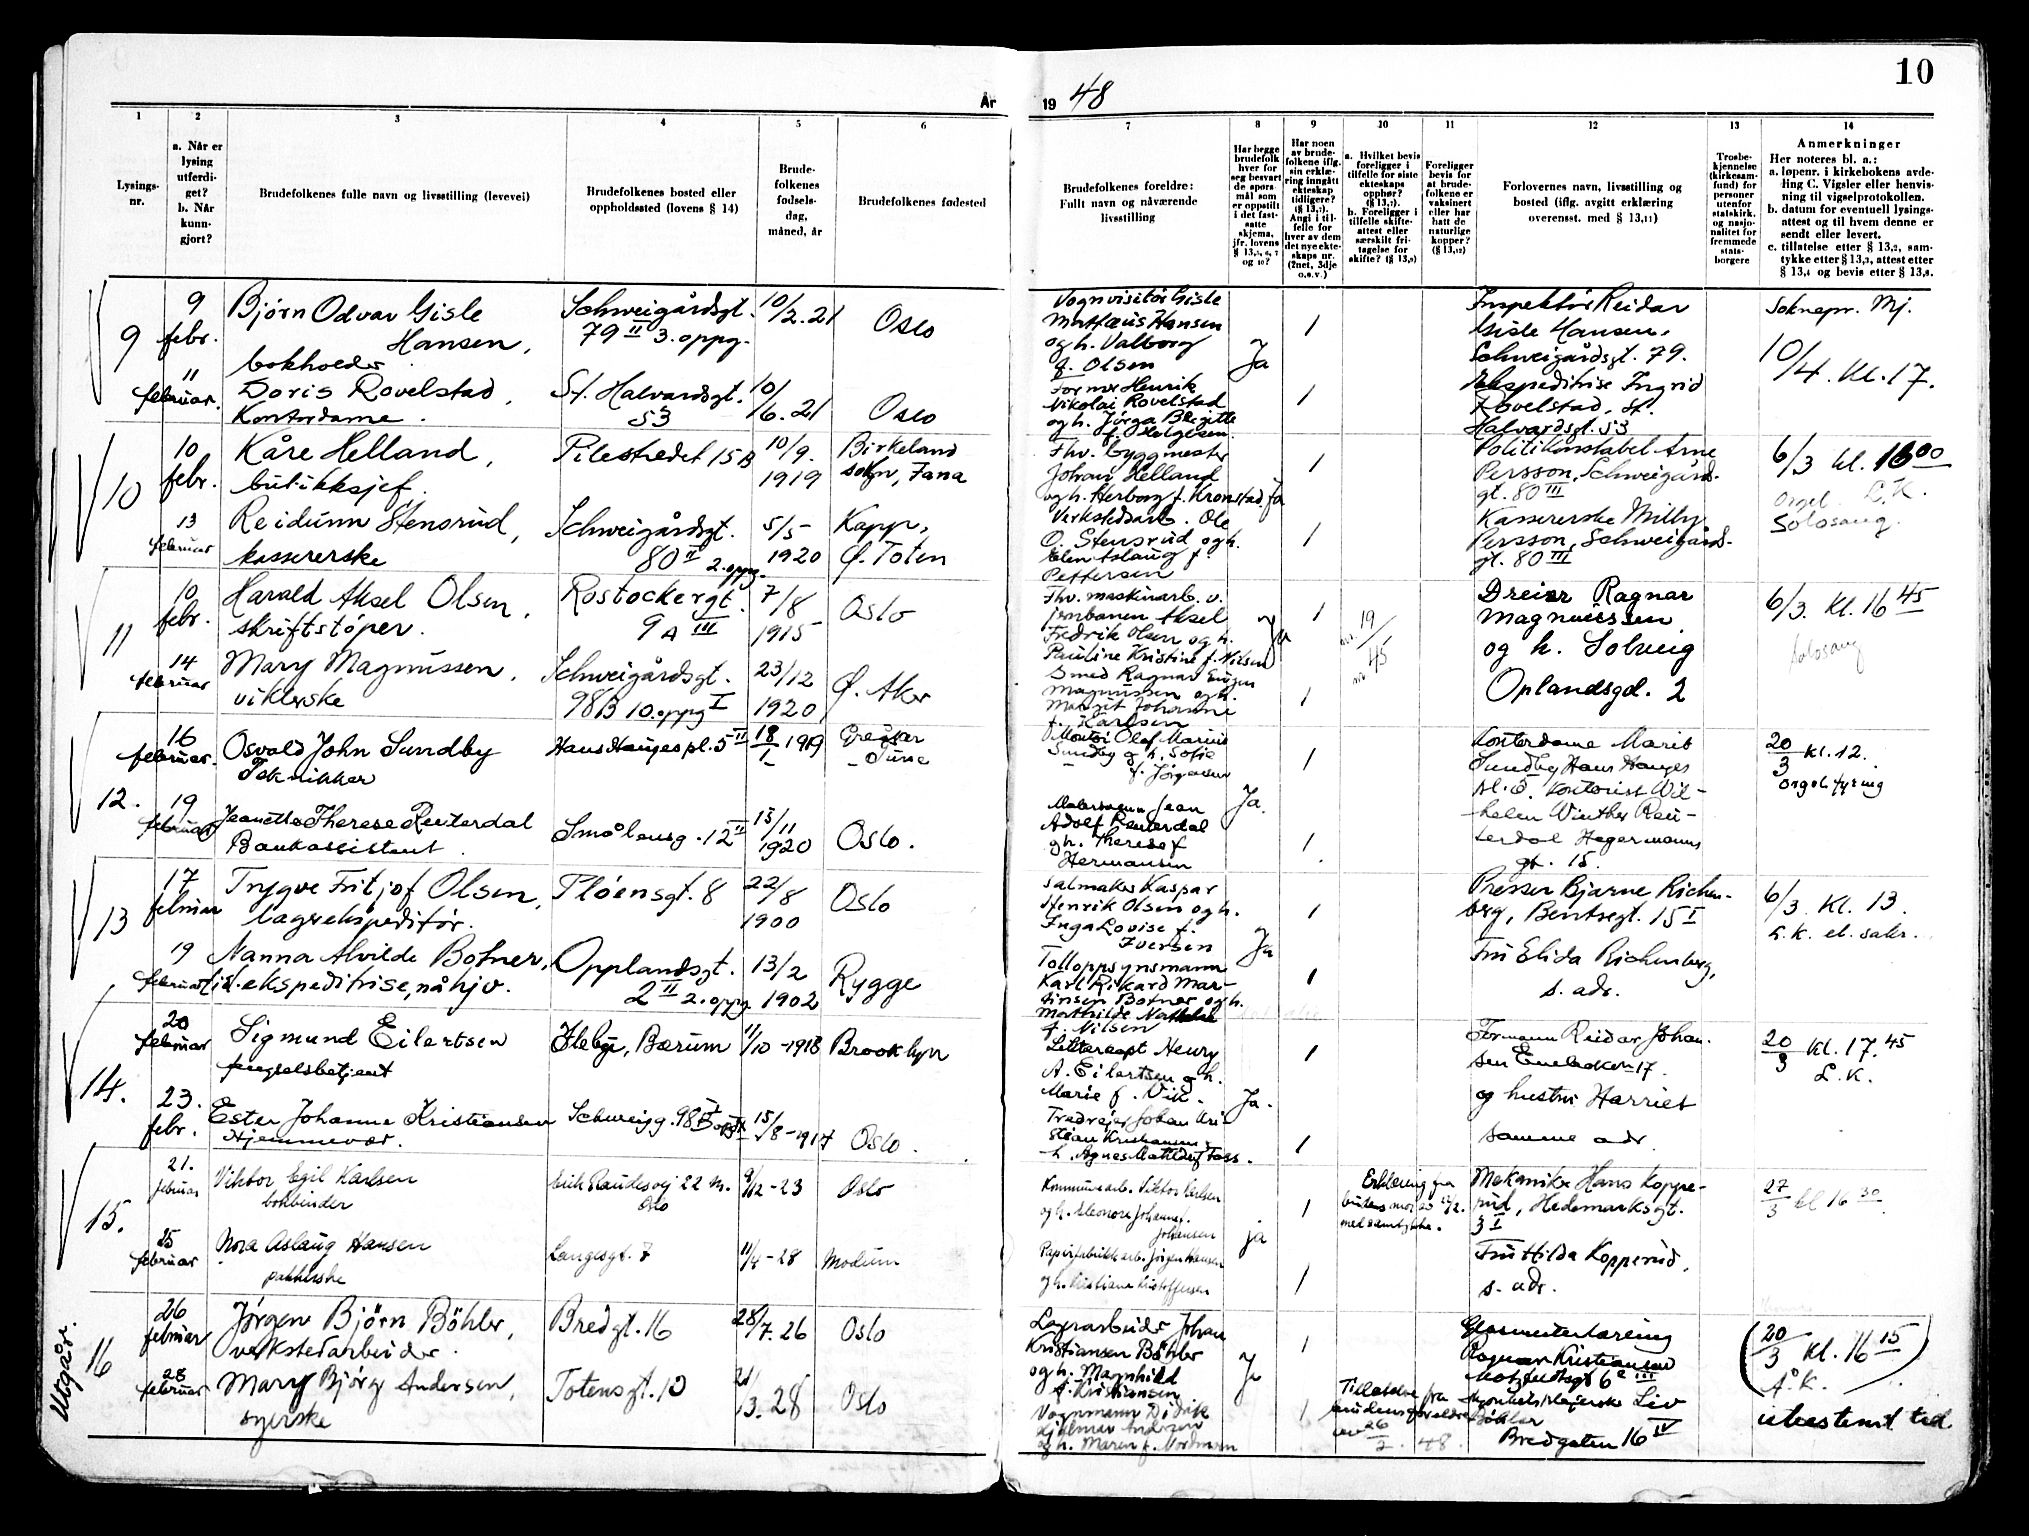 10
År 19 48
1
2
3
4
5
6
7
8
9
10
11
12
13
14
Lysings-
nr.
a. Når er
lysing
utferdi-
get?
b. Når
kunn-
gjort?
Brudefolkenes fulle navn og livsstilling (levevei)
Brudefolkenes bosted eller
oppholdssted (lovens § 14)
Brude-
folkenes
fødsels-
dag,
måned, år
Brudefolkenes fødested
Brudefolkenes foreldre:
Fullt navn og nåværende
livsstilling
Har begge
brudefolk
hver for
seg besvart
de spørs-
mål som
er oppstilt
i det fast-
satte
skjema,
jfr. lovens
Har noen
av brude-
folkene iflg.
sin erklæ-
ring inngått
ekteskap
tidligere?
Angi i til-
felle for
hver av dem
det nye ekte-
skaps nr.
(2net, 3dje
o.s.v.)
a. Hvilket bevis
foreligger i
tilfelle for siste
ekteskaps
opphør?
b. Foreligger i
tilfelle skifte-
attest eller
særskilt fri-
tagelse for
skifte?
Foreligger
bevis for
at brude-
folkene er
vaksinert
eller har
hatt de
naturlige
kopper?
Forlovernes navn, livsstilling og
bosted (iflg. avgitt erklæring
overensst. med § 13,11)
Trosbe-
kjennelse
(kirkesam-
fund) for
personer
utenfor
statskirk.
og nasjo-
nalitet for
fremmede
stats-
borgere
Anmerkninger
Her noteres bl. a.:
a. løpenr. i kirkebokens avde-
ling C. Vigsler eller henvis-
ning til vigselprotokollen.
b. datum for eventuell lysings-
attest og til hvem denne er
sendt eller levert.
c. tillatelse etter § 13,2, sam-
tykke etter § 13,3, attest etter
§ 13,4 og bevis etter § 13,8.
9
9 febr.
11 februar.
Bjørn Odvar Gisle
Hansen,
bokholder
Schweigårdsgt.
79 II 3. oppg.
10/2. 21
Oslo
Vognvisitør Gisle
Mathæus Hansen
og h. Valborg
f. Olsen
Ja
1
Inspektør Reidar
Gisle Hansen,
Schweigårdsgt. 79.
Soknepr. Mj.
10/4. kl. 17.
Doris Rovelstad,
Kontordame.
St. Halvardsgt.
53
10/6. 21
Oslo
Former Henrik
Nikolai Rovelstad
og h. Jørga Birgitte
f. Helgesen.
1
Ekspeditrise Ingrid
Rovelstad, St.
Halvardsgt. 53
10
10 febr.
13 februar
Kåre Helland,
butikksjef.
Pilestredet 15B
10/9.
1919
Birkeland
sokn, Fana
Fhv. byggmester
Johan Helland
og h. Herborg f. Kronstad
Ja
1
Politikonstabel Arne
Persson, Schweigårds-
gt. 80 III
6/3 kl. 16 00
Orgel. L.K.
Solosang.
Reidunn Stensrud,
kassererske
Schweigårdsgt.
80 II 2. oppg.
5/5
1920
Kapp,
Ø. Toten
Verkstedsarb. Ole
O. Stensrud og h.
Elen Aslaug f.
Pettersen
1
Kassererske Milly
Persson, Schweigårds-
gt. 80 III
11
10 febr.
14 februar
Harald Aksel Olsen,
skriftstøper.
Rostockergt.
9 A III
7/8
1915
Oslo
Fhv. maskinarb. v.
jernbanen Aksel
Fredrik Olsen og h.
Pauline Kristine f. Nilsen
Ja
1
19/45
Dreier Ragnar
Magnussen
og h. Solveig
Oplandsgd. 2
6/3. kl. 16 45
Solosang
Mary Magnussen,
viklerske
Schweigårdsgt.
98B 10. oppg I
23/12
1920
Ø. Aker
Smed Ragnar Eugen
Magnussen og h.
Margit Johanne
f. Karlsen
1
12.
16 februar.
19 februar
Osvald John Sundby
Tekniker
Hans Hauges pl. 5 II
18/1 1919
Greåker
- Tune
Montør Olaf Marius
Sundby og h. Sofie
f. Jørgensen
Ja.
1
Kontordame Marit
Sundby Hans Hauges
pl. 5. Kontorist Wil-
helm Winther Reu-
terdal Hegermanns
gt. 15.
20/3 kl. 12.
Orgel fyring
Jeanette Therese Reuterdal
Bankassistent.
Smålensg. 12 II
15/11
1920
Oslo.
Malersvenn Jean
Adolf Reuterdal
og h. Therese f.
Hermansen
1
13
17 februar
19 februar
Trygve Fritjof Olsen,
lagerekspeditør.
Pløensgt. 8
22/8
1900
Oslo
Salmaker Kaspar
Henrik Olsen og h.
Inga Lovise f.
Iversen
Ja
1
Presser Bjarne Richen-
berg, Bentsegt. 15 I
6/3 kl. 13.
L.K. el. sakr.
Nanna Alvilde Botner,
tid. ekspeditrise, nå hjv.
Opplandsgt.
2 II 2. oppg
13/2
1902
Rygge
Tolloppsynsmann
Karl Rikard Mar-
tinsen Botner og h.
Mathilde
f. Nilsen
1
Fru Elida Richenberg,
s. adr.
14.
20 februar
23. febr.
Sigmund Eilertsen
fengselsbetjent
Ileby, Bærum
11/10 - 1918
Brooklyn
Henry
A. Eilertsen og h.
Marie f. Vik.
Ja.
1
Formann Reidar Johan-
sen 17.
og hustru Harriet
samme adr.
20/3 kl. 17.45
L.K.
Ester Johanne Kristiansen
Hjemmevær.
Schweigg. 98
15/8 - 1917
Oslo.
Johan Kri-
stian Kristiansen og
h. Agnes Mathilde f. Foss.
1
15.
21. februar
25 februar
Viktor Egil Karlsen
bokbinder
22
Oslo
9/12 - 23
Oslo
Kommunearb. Viktor Carlsen
og h. Eleonore Johanne f.
Johansen
ja
1
Erklæring fra
med samtykke.
Mekaniker Hans Koppe-
rud, Hedemarksgt.
3 I
27/3 kl 16 30
Nora Aslaug Hansen
pakkerske
Langesgt. 7
11/4 - 28
Modum
Papirfabrikkarb. Jørgen Hansen
og h. Kristiane Kristoffersen
1
Fru Hilda Kopperud,
s. adr.
Utgår.
16
26 februar
28 februar
Jørgen Bjørn Böhler,
verkstedarbeider.
Bredgt. 16
28/7. 26
Oslo
Lagerarbeider Johan
Kristiansen Böhler
og h. Magnhild
f. Kristiansen
Ja
1
Glassmesterlærling
Ragnar Kristiansen
Motzfeldtsgt 6 III
(20/3 kl. 16 15
Å.K.)
Mary Bjørg Andersen,
syerske
Totensgt. 10
21/3. 28
Oslo
Vognmann Didrik
Hjalmar Andersen
og h. Maren f. Nordmoen
1
Tillatelse fra
brudens foreldre
av 26/2. 48.
Liv
Böhler
Bredgaten 16 IV
ubestemt tid.